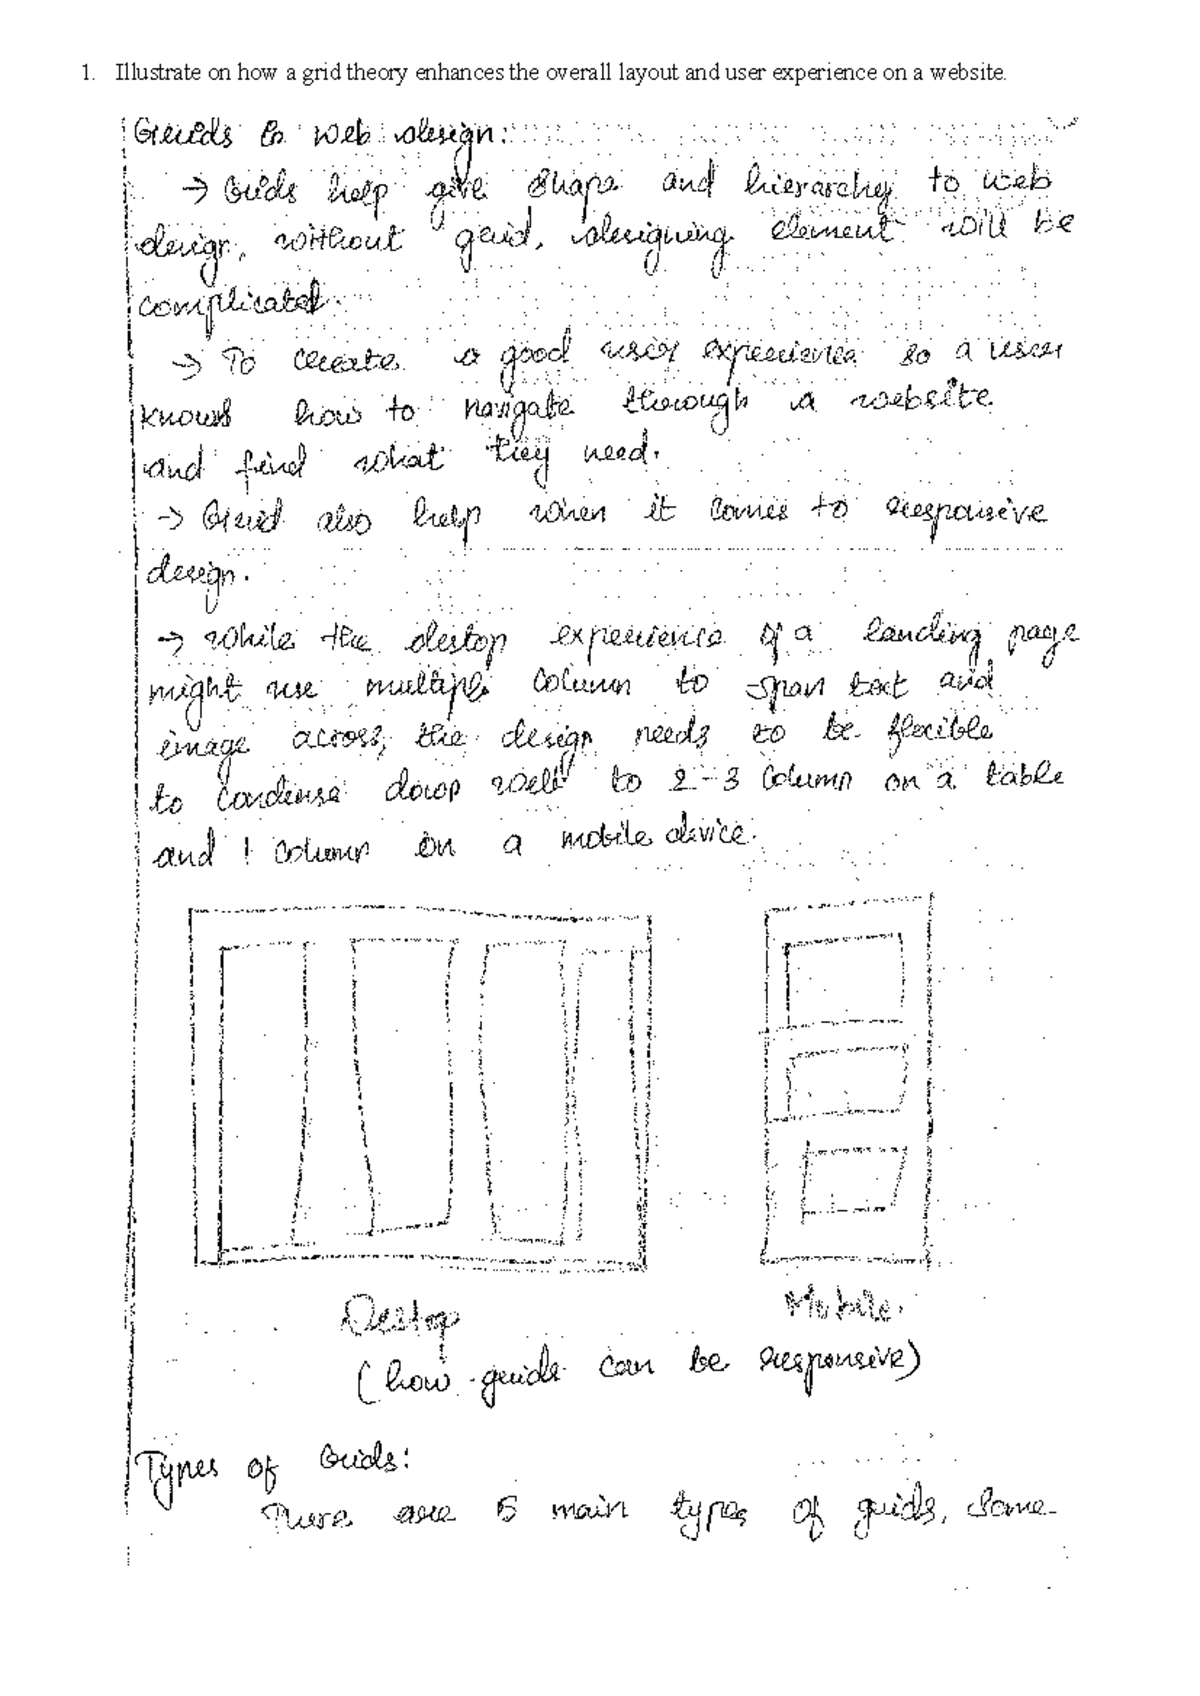 1. Illustrate on how a grid theory enhances the overall layout and user experience on a website.
Grids in web design:
→ Grids help give shape and hierarchy to web
design, without grid, designing element will be
complicated.
→ To create a good user experience so a user
knows how to navigate thorough a website
and find what they need.
→ Grid also help when it comes to responsive
design.
→ While the destop experience of a landing page
might use multiple column to span text and
image across, the design needs to be flexible
to condense down well to 2-3 column on a table
and 1 column on a mobile device.
Destop
Mobile.
(how grids can be responsive)
Types of Grids:
There are 5 main types of grids, some-